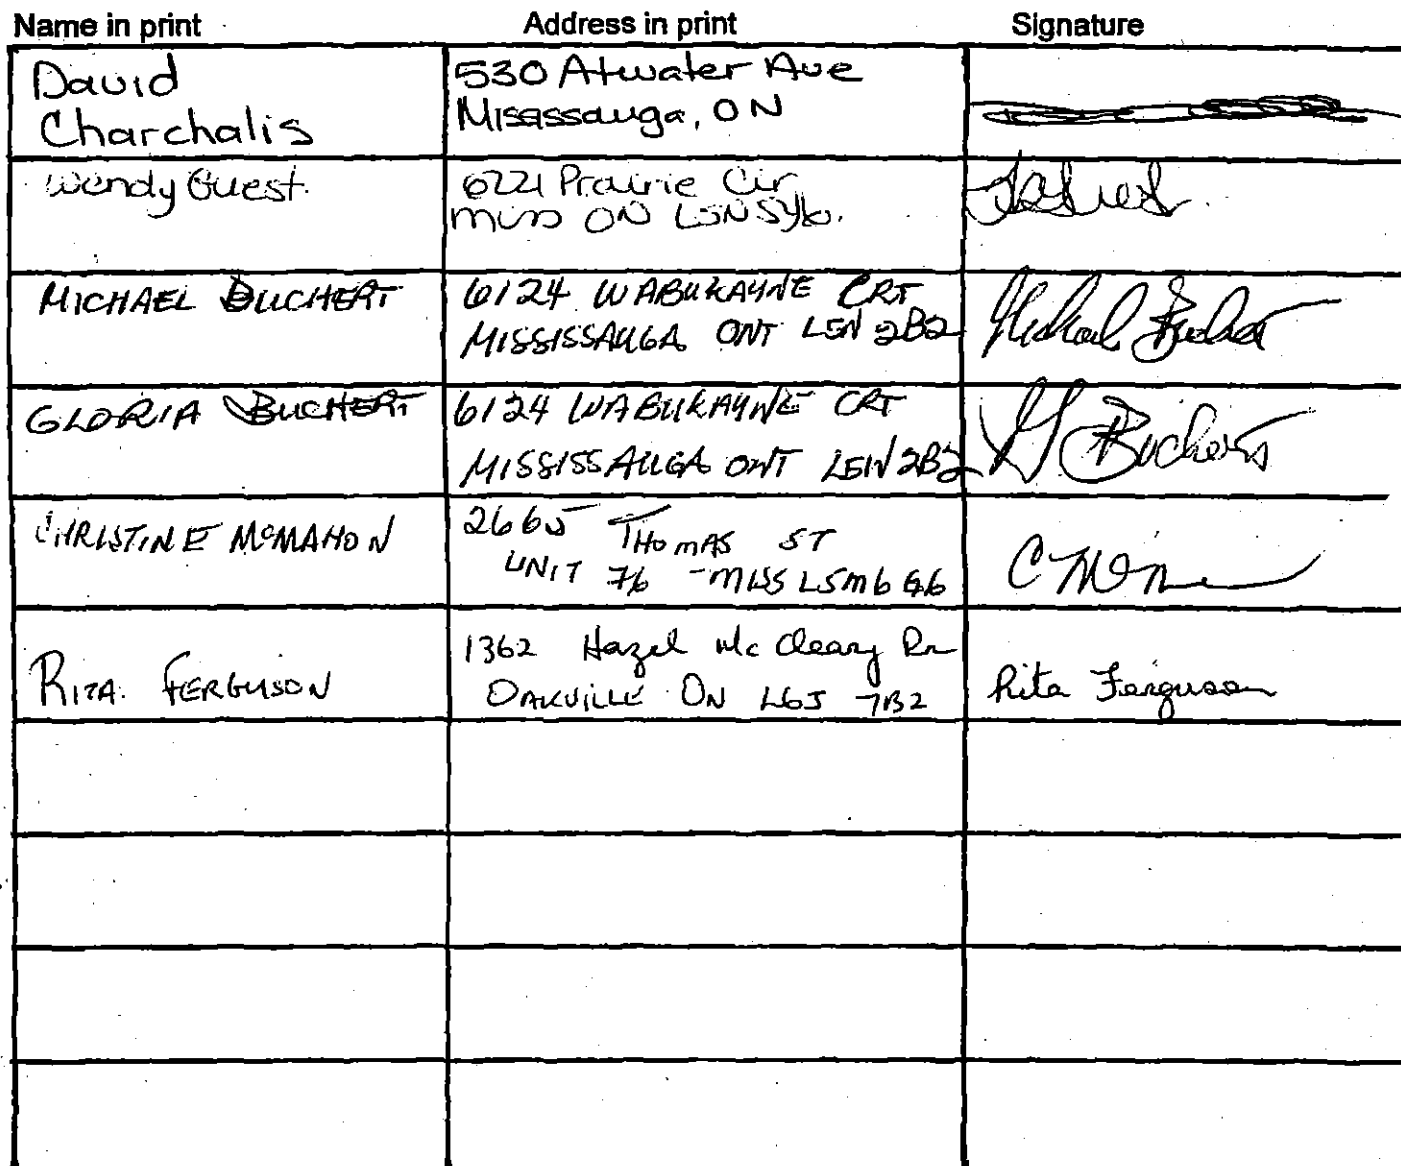 Name in print Address in print Signature
David
Charchalis
530 Atwater Ave
Misassauga, ON
Wendy Guest.
6221 Prairie Cir
miss ON L5N5Y6.
MICHAEL BUCHERT
6124 WABUKAYNE CRT
MISSISSAUGA ONT L5N 2B2
Michael Buchert
GLORIA BUCHERT
6124 WABUKAYNE CRT
MISSISSAUGA ONT L5N 2B2
G Buchert
CHRISTINE McMAHON
2665 THOMAS ST
UNIT 76 - MISS L5M6G6
RITA FERGUSON
1362 Hazel McCleary Dr
OAKVILLE ON L6J 7B2
Rita Ferguson